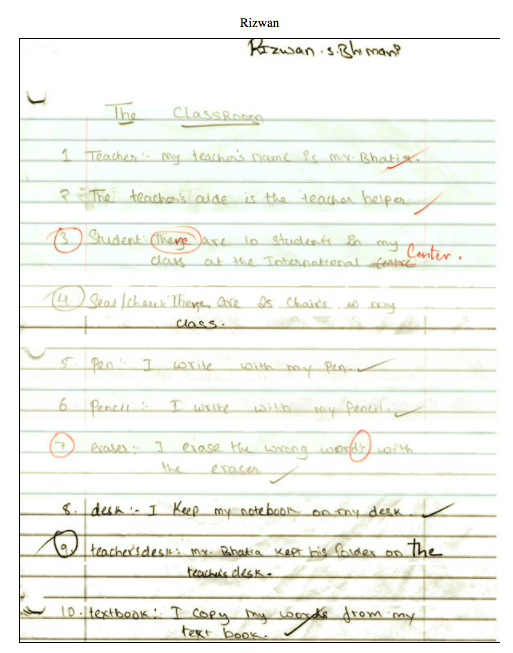 Rizwan
Rizwan . S. Bhimani
The ClassRoom
1 Teacher :- my teacher's name is mr. Bhatia.
2 The teacher's aide is the teacher helper
3 Student: There are 10 students in my
class at the International Centre Center.
4 Seat/chair: There are 25 Chairs in my
class.
5. Pen :- I write with my Pen.
6. Pencil :- I write with my Pencil.
7 eraser :- I erase the wrong words with
the eraser
8. desk :- I Keep my notebook on my desk.
9. teacher's desk: mr. Bhatia kept his folder on the
teacher's desk.
10. textbook :- I copy my words from my
text book.